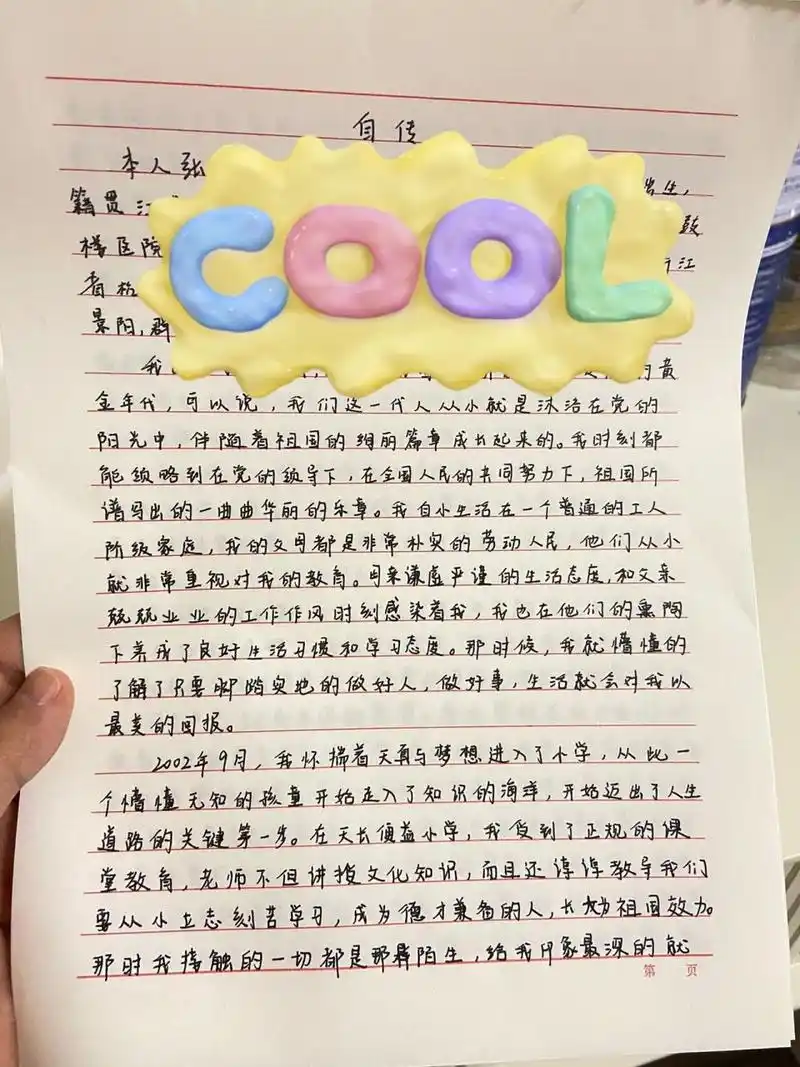 自传
本人张
出生,
籍贯江
鼓
COOL
楼医院
江
省杭
景阳,群
我
黄
金年代,可以说,我们这一代人从小就是沐浴在党的
阳光中,伴随着祖国的绚丽篇章成长起来的。我时刻都
能领略到在党的领导下,在全国人民的共同努力下,祖国所
谱写出的一曲曲华丽的乐章。我自小生活在一个普通的工人
阶级家庭,我的父母都是非常朴实的劳动人民,他们从小
就非常重视对我的教育。母亲谦虚严谨的生活态度,和父亲
兢兢业业的工作作风时刻感染着我,我也在他们的熏陶
下养成了良好生活习惯和学习态度。那时候,我就懵懂的
了解了只要脚踏实地的做好人,做好事,生活就会对我以
最美的回报。
2002年9月,我怀揣着天真与梦想进入了小学,从此一
个懵懂无知的孩童开始走入了知识的海洋,开始迈出了人生
道路的关键第一步。在天长小学,我受到了正规的课
堂教育,老师不但讲授文化知识,而且还谆谆教导我们
要从小立志刻苦学习,成为德才兼备的人,长大为祖国效力。
那时我接触的一切都是那样陌生,给我印象最深的就
第 页